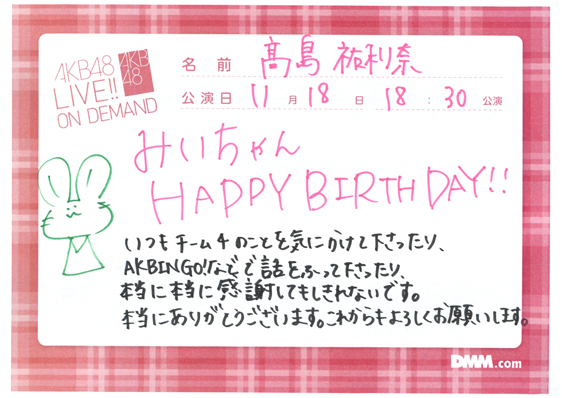 AKB48
LIVE!!
ON DEMAND
AKB
48
名 前 髙島 祐利奈
公演日 11 月 18 日 18 : 30 公演
みいちゃん
HAPPY BIRTHDAY!!
いつもチーム4のことを気にかけて下さったり、
AKBINGO!などで話をふって下さったり、
本当に本当に感謝してもしきれないです。
本当にありがとうございます。これからもよろしくお願いします。
DMM.com